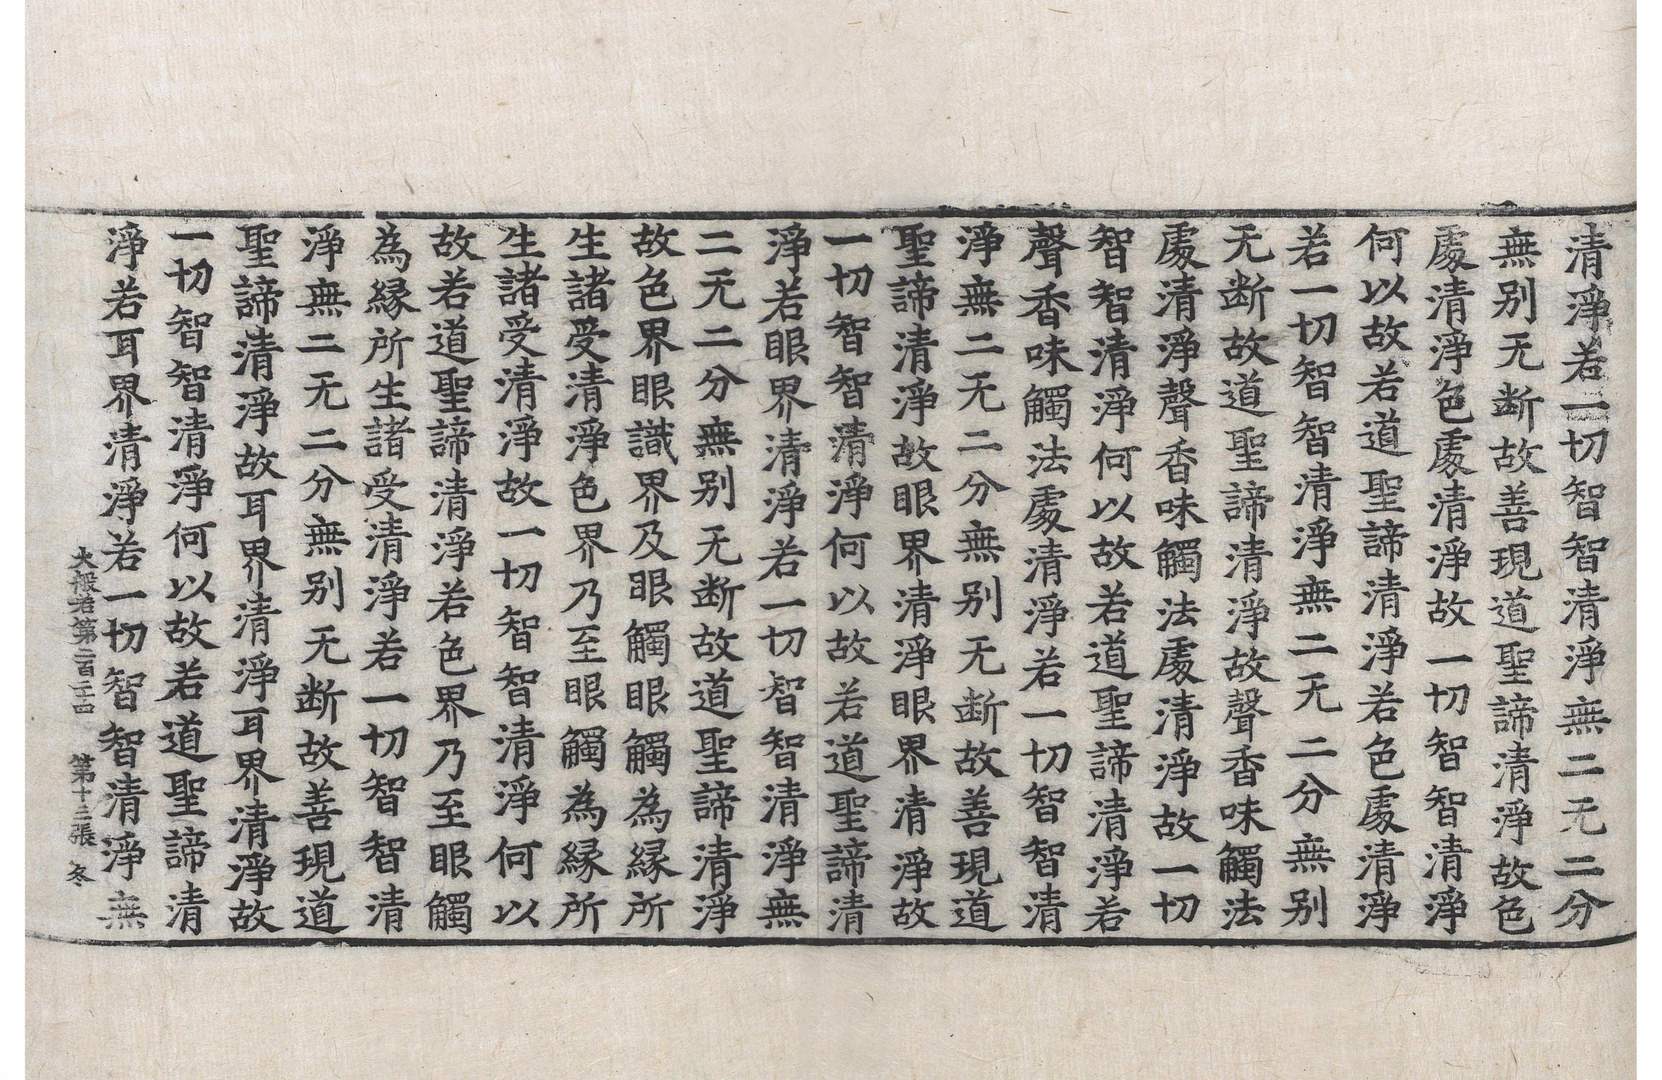 清淨若一切智智清淨無二无二分
無別无断故善現道聖諦清淨故色
處清淨色處清淨故一切智智清淨
何以故若道聖諦清淨若色處清淨
若一切智智清淨無二无二分無別
无断故道聖諦清淨故聲香味觸法
處清淨聲香味觸法處清淨故一切
智智清淨何以故若道聖諦清淨若
聲香味觸法處清淨若一切智智清
淨無二无二分無別无断故善現道
聖諦清淨故眼界清淨眼界清淨故
一切智智清淨何以故若道聖諦清
淨若眼界清淨若一切智智清淨無
二无二分無別无断故道聖諦清淨
故色界眼識界及眼觸眼觸為縁所
生諸受清淨色界乃至眼觸為縁所
生諸受清淨故一切智智清淨何以
故若道聖諦清淨若色界乃至眼觸
為縁所生諸受清淨若一切智智清
淨無二无二分無別无断故善現道
聖諦清淨故耳界清淨耳界清淨故
一切智智清淨何以故若道聖諦清
淨若耳界清淨若一切智智清淨無
大般若第二百二十四 第十三張 冬